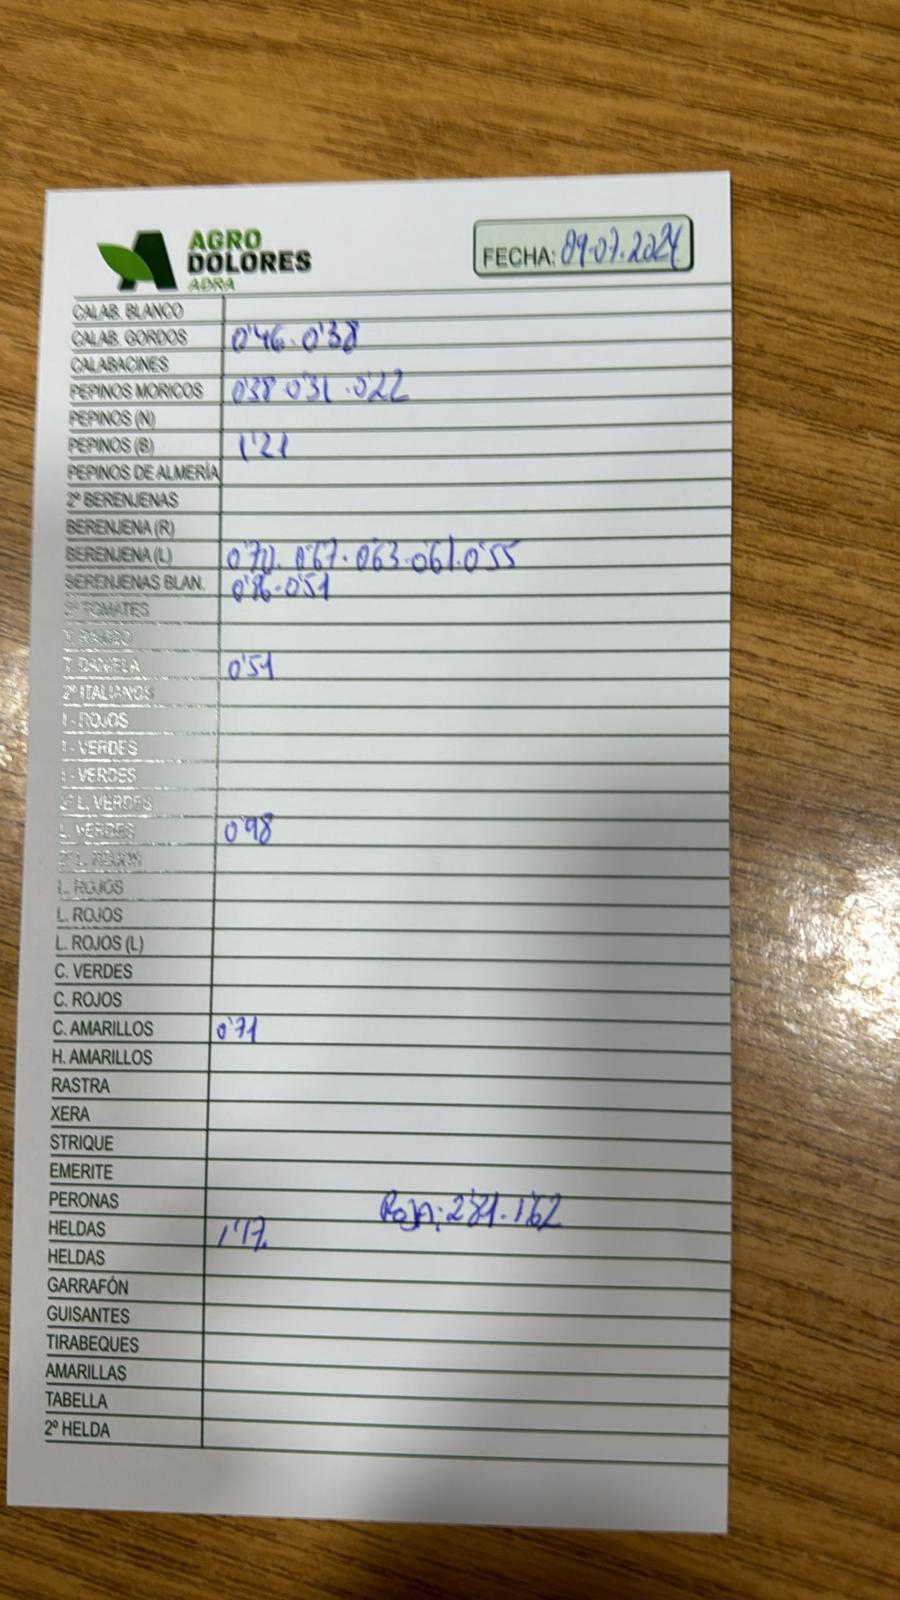 AGRO
DOLORES
ADRA
FECHA: 09.07.2024
CALAB. BLANCO
CALAB. GORDOS 0'46.0'38
CALABACINES
PEPINOS MORICOS 0'38.0'31.0'22
PEPINOS (N)
PEPINOS (B) 1'21
PEPINOS DE ALMERÍA
2º BERENJENAS
BERENJENA (R)
BERENJENA (L) 0'70.0'67.0'63.0'61.0'55
BERENJENAS BLAN. 0'51
2º TOMATES
T.
T. DANIELA 0'51
2º ITALIANOS
I - ROJOS
I - VERDES
I - VERDES
2º L. VERDES
L. VERDES 0'98
2º L. ROJOS
L. ROJOS
L. ROJOS
L. ROJOS (L)
C. VERDES
C. ROJOS
C. AMARILLOS 0'71
H. AMARILLOS
RASTRA
XERA
STRIQUE
EMERITE
PERONAS Roja: 2'81.1'62
HELDAS 1'17
HELDAS
GARRAFÓN
GUISANTES
TIRABEQUES
AMARILLAS
TABELLA
2º HELDA